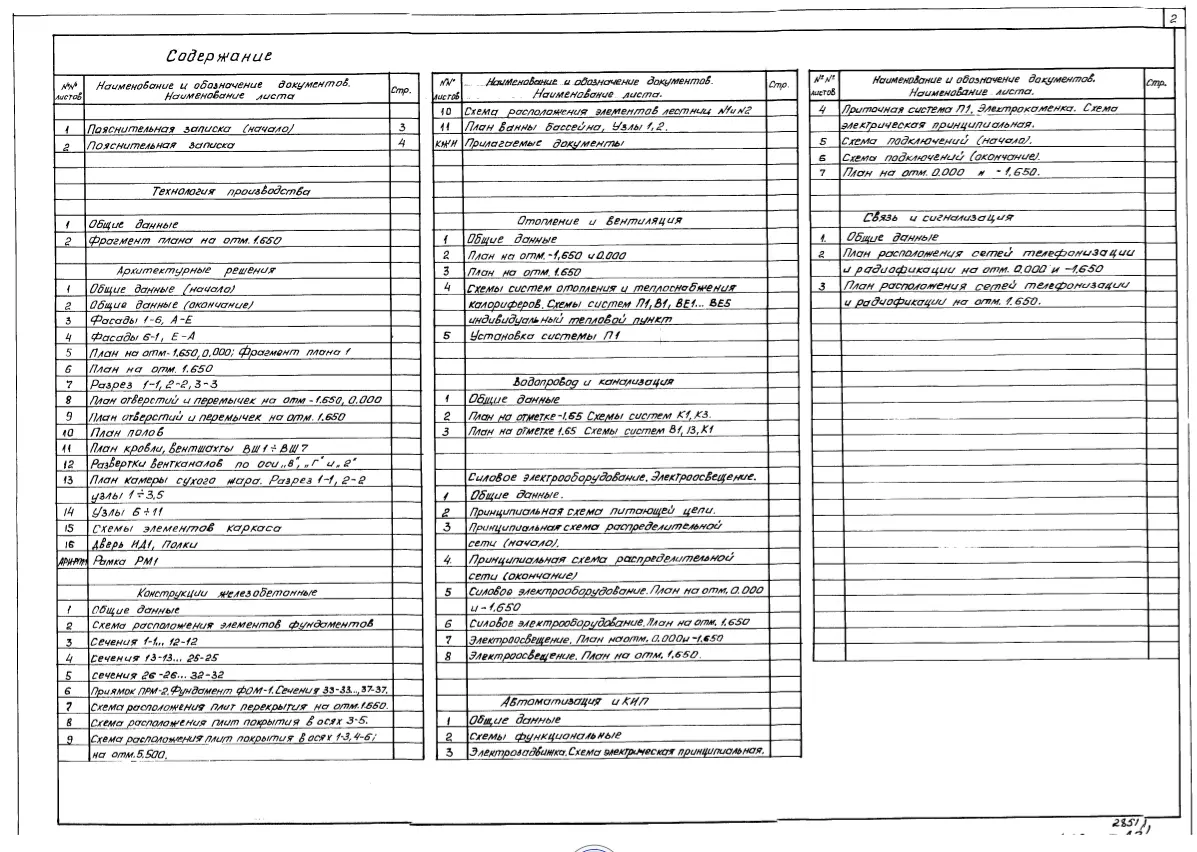 2
Содержание
№№ листов
Наименование и обозначение документов.
Наименование листа
Стр.
1 Пояснительная записка (начало) 3
2 Пояснительная записка 4
Технология производства
1 Общие данные
2 Фрагмент плана на отм. 1.650
Архитектурные решения
1 Общие данные (начало)
2 Общие данные (окончание)
3 Фасады 1-6, А-Е
4 Фасады 6-1, Е-А
5 План на отм-1.650, 0.000; Фрагмент плана 1
6 План на отм. 1.650
7 Разрез 1-1, 2-2, 3-3
8 План отверстий и перемычек на отм -1.650, 0.000
9 План отверстий и перемычек на отм. 1.650
10 План полов
11 План кровли, вентшахты ВШ1÷ВШ7
12 Развертки вентканалов по оси „в", „г" и „2"
13 План камеры сухого жара. Разрез 1-1, 2-2
узлы 1÷3,5
14 Узлы 6÷11
15 Схемы элементов каркаса
16 Дверь ИД1, Полки
Рамка РМ1
Конструкции железобетонные
1 Общие данные
2 Схема расположения элементов фундаментов
3 Сечения 1-1... 12-12
4 Сечения 13-13... 25-25
5 Сечения 26-26... 32-32
6 Приямок ПРМ-2. Фундамент ФОМ-1. Сечения 33-33..., 37-37.
7 Схема расположения плит перекрытия на отм. 1.650.
8 Схема расположения плит покрытия в осях 3-5.
9 Схема расположения плит покрытия в осях 1-3, 4-6;
на отм. 5.500.
№№ листов
Наименование и обозначение документов.
Наименование листа.
Стр.
10 Схема расположения элементов лестниц №1 и №2
11 План ванны бассейна, Узлы 1, 2.
КЖИ Прилагаемые документы
Отопление и вентиляция
1 Общие данные
2 План на отм. -1,650 и 0.000
3 План на отм. 1.650
4 Схемы систем отопления и теплоснабжения
калориферов. Схемы систем П1, В1, ВЕ1... ВЕ5
индивидуальный тепловой пункт
5 Установка системы П1
Водопровод и канализация
1 Общие данные
2 План на отметке -1.65 Схемы систем К1, К3.
3 План на отметке 1.65 Схемы систем В1, Т3, К1
Силовое электрооборудование. Электроосвещение.
1 Общие данные.
2 Принципиальная схема питающей цепи.
3 Принципиальная схема распределительной
сети (начало).
4. Принципиальная схема распределительной
сети (окончание)
5 Силовое электрооборудование. План на отм. 0.000
и -1.650
6 Силовое электрооборудование. План на отм. 1.650
7 Электроосвещение. План на отм. 0.000 и -1.650
8 Электроосвещение. План на отм. 1.650.
Автоматизация и КИП
1 Общие данные
2 Схемы функциональные
3 Электрозадвижка. Схема электрическая принципиальная.
№№ листов
Наименование и обозначение документов.
Наименование листа.
Стр.
4 Приточная система П1. Электрокаменка. Схема
электрическая принципиальная.
5 Схема подключений (начало).
6 Схема подключений (окончание).
7 План на отм. 0.000 и -1.650.
Связь и сигнализация
1. Общие данные
2. План расположения сетей телефонизации
и радиофикации на отм. 0.000 и -1.650
3 План расположения сетей телефонизации
и радиофикации на отм. 1.650.
2851